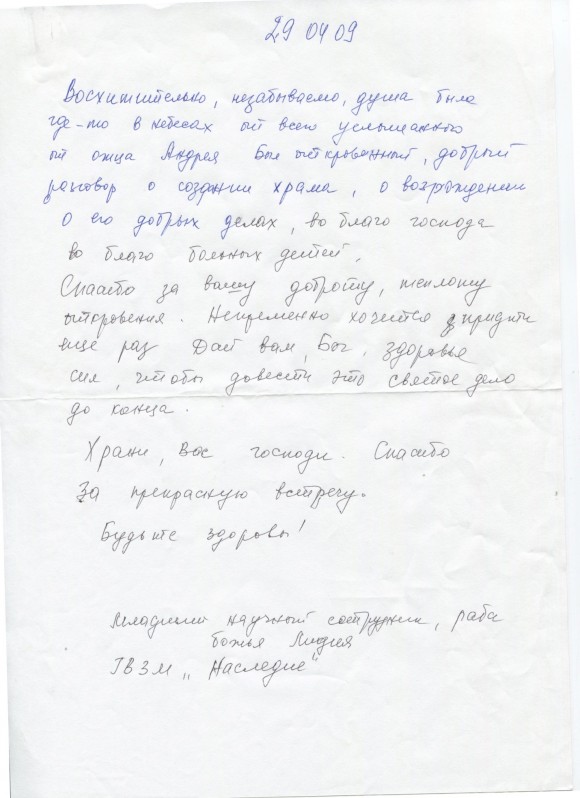 29 04 09
Восхитительно, незабываемо, душа была
где-то в небесах от всего услышанного
от отца Андрея Был откровенный, добрый
разговор о создании храма, о возрождении
о его добрых делах, во благо господа
во благо больных детей.
Спасибо за вашу доброту, теплоту
откровения. Непременно хочется придти
еще раз Дай вам, Бог, здоровье
сил, чтобы довести это святое дело
до конца.
Храни, Вас господи. Спасибо
За прекрасную встречу.
Будьте здоровы!
Младший научный сотрудник, раба
божья Лидия
ГВЗМ „Наследие"